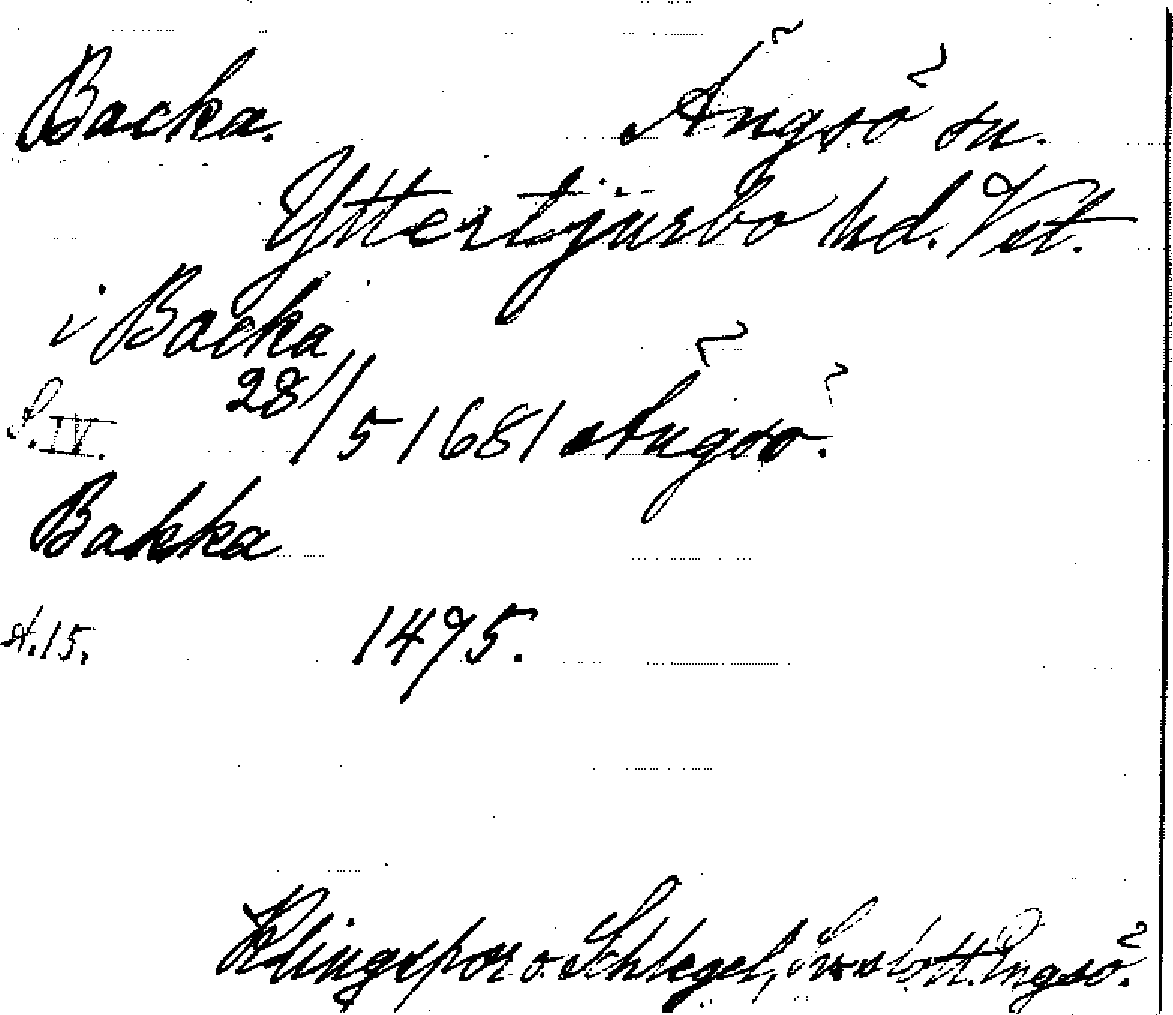 Backa. Ängsö sn.
Yttertjurbo hd. Vstm.
i Backa
S.IV. 28/5 1681 Ängsö.
Bakka
A.15. 1475.
Klingspor o. Schlegel, Engsö.